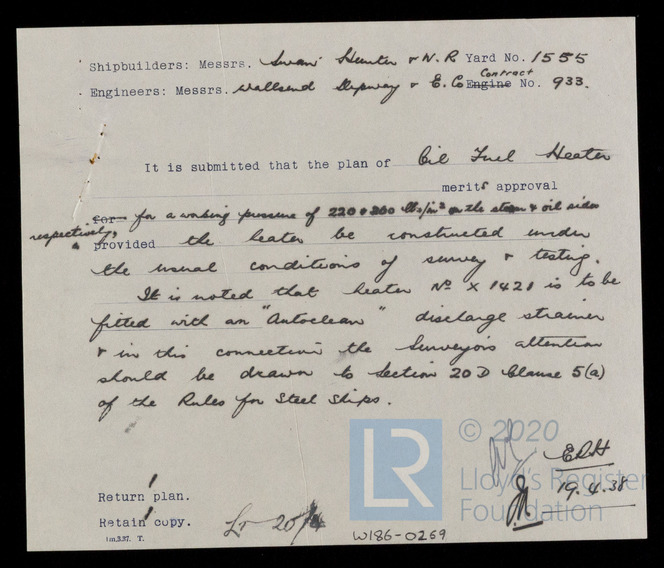 Shipbuilders: Messrs. Swan Hunter & W.R Yard No. 1555
Contract
Engineers: Messrs. Wallsend Slipway & E. Co Engine No. 933.
It is submitted that the plan of Oil Fuel Heater
merits approval
for for a working pressure of 220 & 200 lbs/in² on the steam & oil sides
respectively,
provided the heater be constructed under
the usual conditions of survey & testing.
It is noted that heater No X 1421 is to be
fitted with an "Autoclean" discharge strainer
& in this connection the Surveyors attention
should be drawn to Section 20 D Clause 5(a)
of the Rules for Steel Ships.
© 2020
LR
Lloyd's Register
Foundation
ERH
19.4.38
Return 1 plan.
Retain 1 copy.
Lr 20/4
1m.3.37. T.
W186-0269